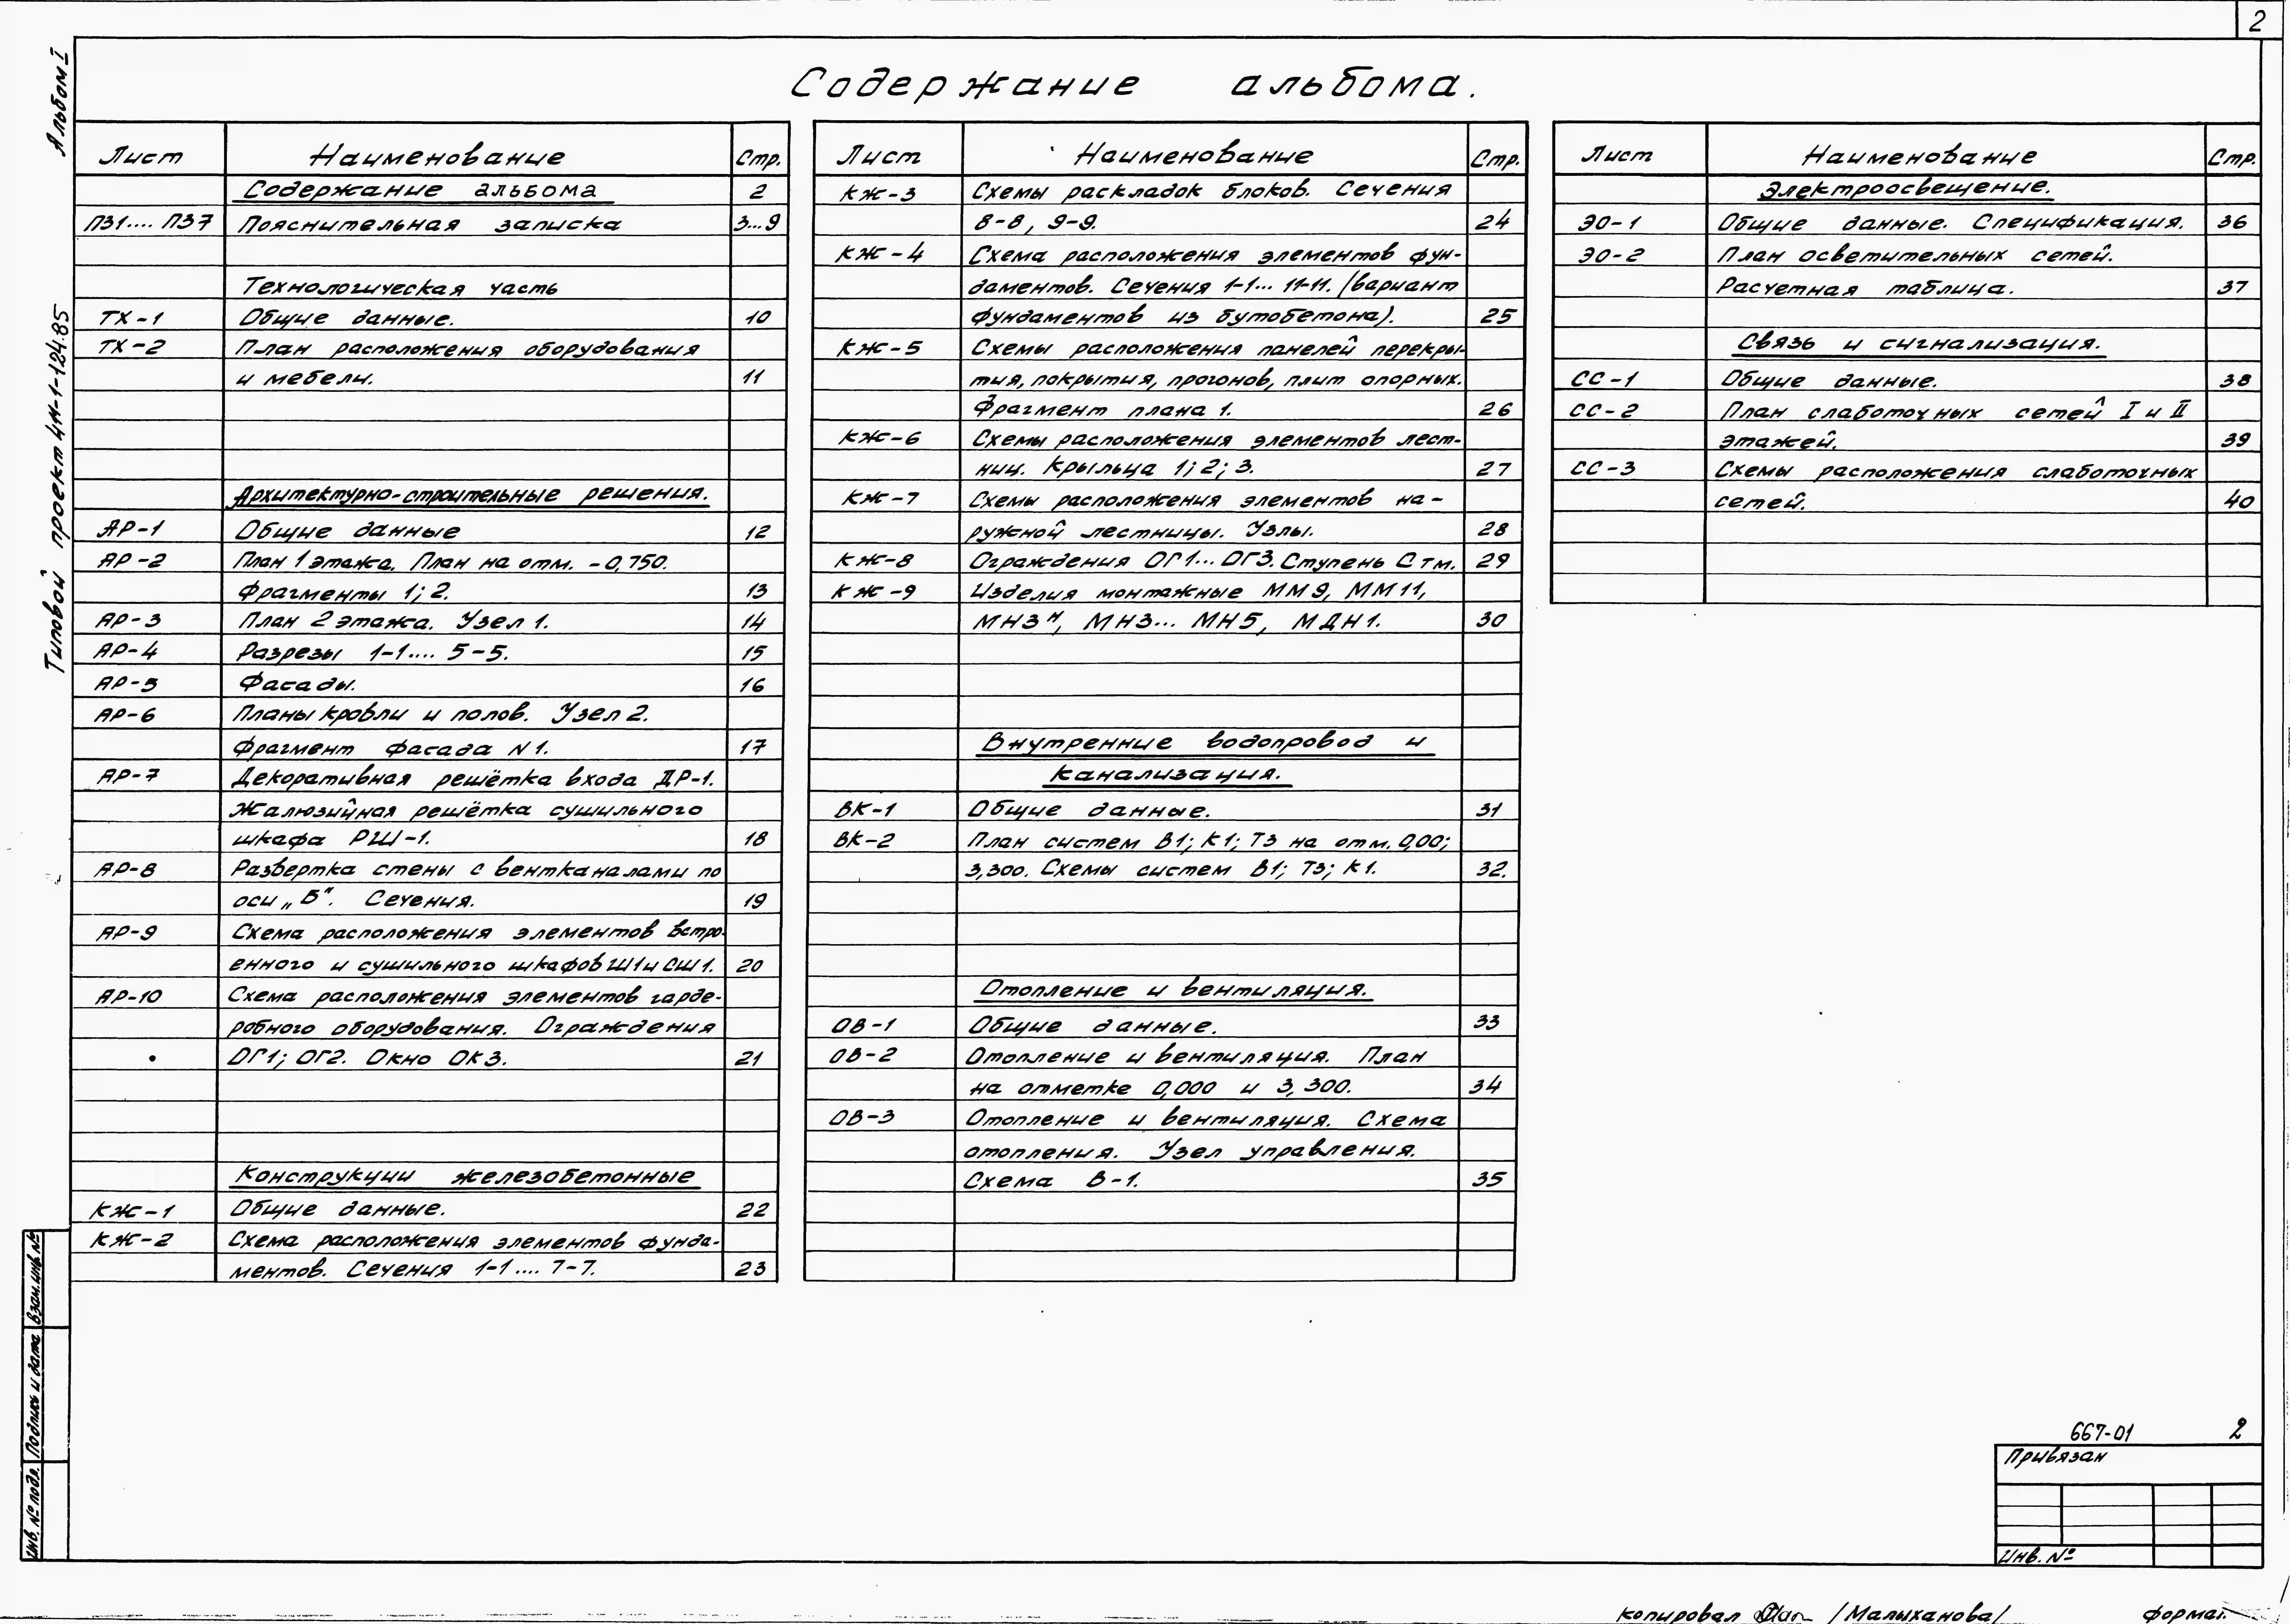 2
Содержание альбома.
Альбом I
Типовой проект 4Н-1-124.85
Лист Наименование Стр.
Содержание альбома 2
ПЗ1.... ПЗ7 Пояснительная записка 3...9
Технологическая часть
ТХ-1 Общие данные. 10
ТХ-2 План расположения оборудования
и мебели. 11
Архитектурно-строительные решения.
АР-1 Общие данные 12
АР-2 План 1 этажа. План на отм. -0,750.
Фрагменты 1; 2. 13
АР-3 План 2 этажа. Узел 1. 14
АР-4 Разрезы 1-1.... 5-5. 15
АР-5 Фасады. 16
АР-6 Планы кровли и полов. Узел 2.
Фрагмент фасада N1. 17
АР-7 Декоративная решётка входа ДР-1.
Жалюзийная решётка сушильного
шкафа РШ-1. 18
АР-8 Развертка стены с вентканалами по
оси „Б". Сечения. 19
АР-9 Схема расположения элементов встро-
енного и сушильного шкафов Ш1 и СШ1. 20
АР-10 Схема расположения элементов гарде-
робного оборудования. Ограждения
ОГ1; ОГ2. Окно ОК3. 21
Конструкции железобетонные
КЖ-1 Общие данные. 22
КЖ-2 Схема расположения элементов фунда-
ментов. Сечения 1-1.... 7-7. 23
Лист Наименование Стр.
КЖ-3 Схемы раскладок блоков. Сечения
8-8, 9-9. 24
КЖ-4 Схема расположения элементов фун-
даментов. Сечения 1-1... 11-11. (вариант
фундаментов из бутобетона). 25
КЖ-5 Схемы расположения панелей перекры-
тия, покрытия, прогонов, плит опорных.
Фрагмент плана 1. 26
КЖ-6 Схемы расположения элементов лест-
ниц. Крыльца 1; 2; 3. 27
КЖ-7 Схемы расположения элементов на-
ружной лестницы. Узлы. 28
КЖ-8 Ограждения ОГ1... ОГ3. Ступень Стм. 29
КЖ-9 Изделия монтажные ММ9, ММ11,
МН3н, МН3... МН5, МДН1. 30
Внутренние водопровод и
канализация.
ВК-1 Общие данные. 31
ВК-2 План систем В1; К1; Т3 на отм. 0,00;
3,300. Схемы систем В1; Т3; К1. 32.
Отопление и вентиляция.
ОВ-1 Общие данные. 33
ОВ-2 Отопление и вентиляция. План
на отметке 0,000 и 3,300. 34
ОВ-3 Отопление и вентиляция. Схема
отопления. Узел управления.
Схема В-1. 35
Лист Наименование Стр.
Электроосвещение.
ЭО-1 Общие данные. Спецификация. 36
ЭО-2 План осветительных сетей.
Расчетная таблица. 37
Связь и сигнализация.
СС-1 Общие данные. 38
СС-2 План слаботочных сетей I и II
этажей. 39
СС-3 Схемы расположения слаботочных
сетей. 40
Инв. № подл. Подпись и дата Взам. инв. №
667-01 2
Привязан
Инв. №
Копировал /Малыханова/ Формат